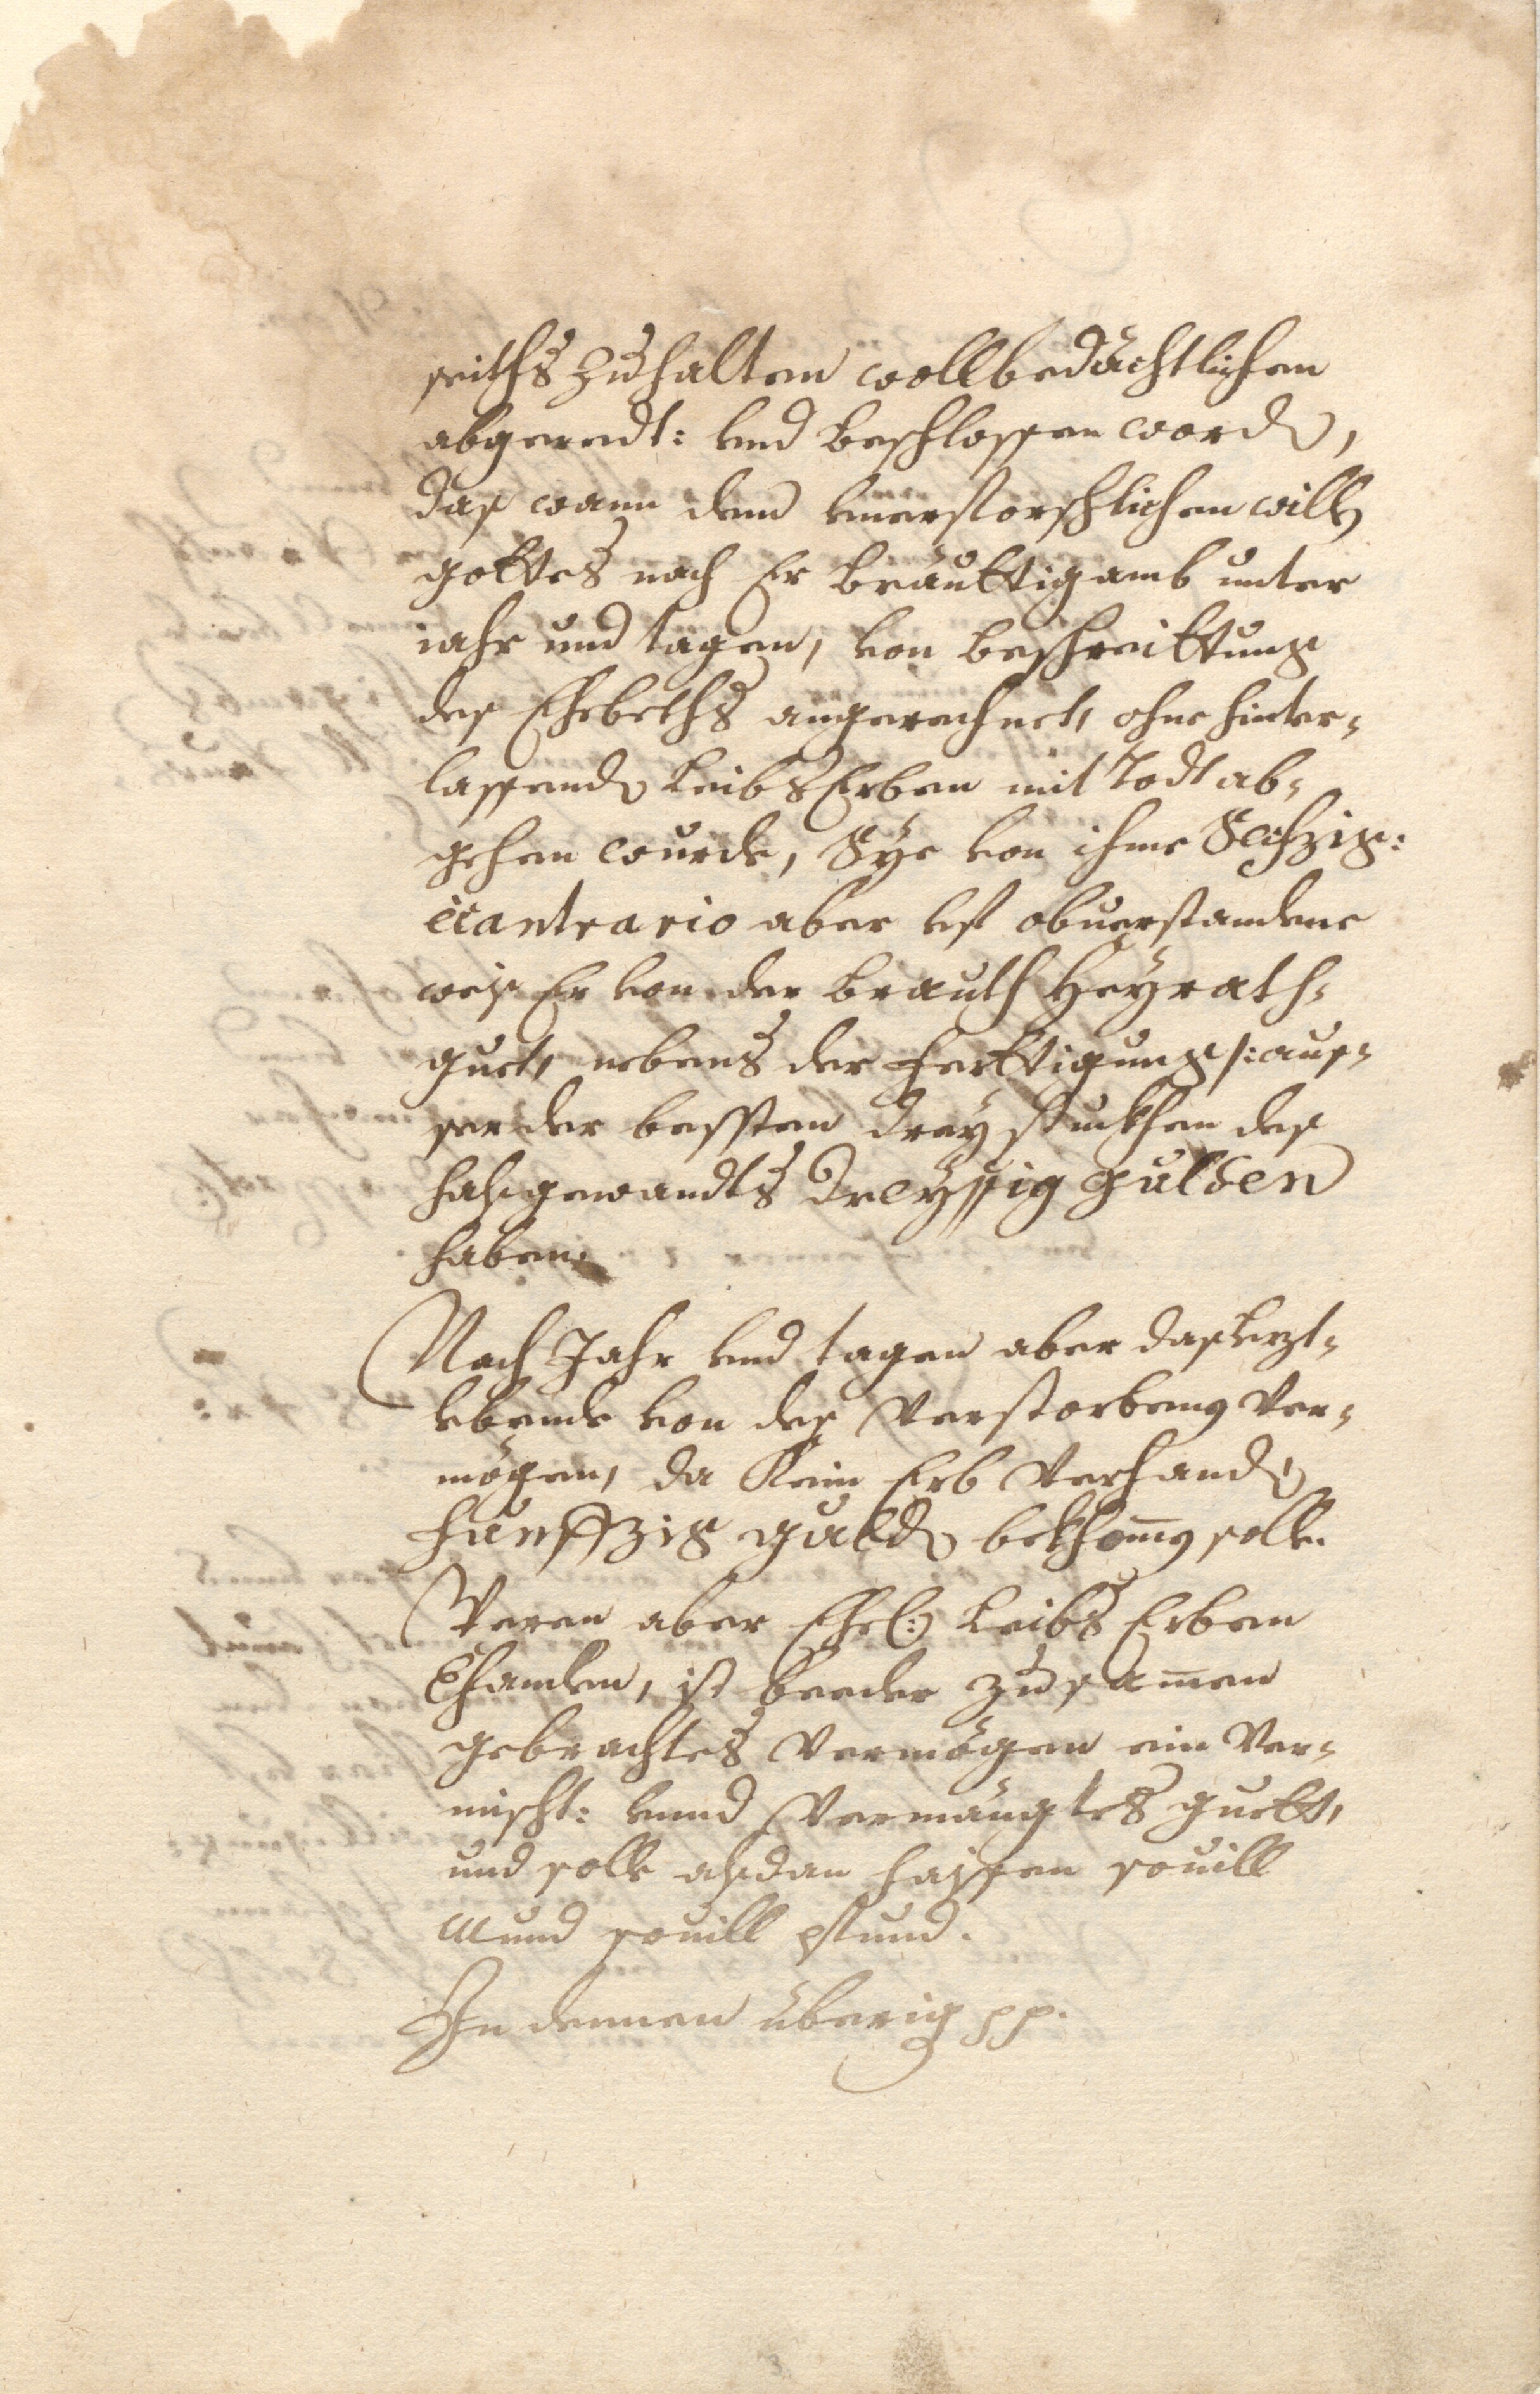 seiths zuhalten wollbedächtlichen
abgeredt: vnd beschlossen word(en),
das wann dem vnerforschlichen will(en)
gottes nach Er Bräuttigamb unter
iahr und tagen, von beschreittung
des Ehebeths angerechnet, ohne hinter-
lassend(en) LeibsErben mit Todt ab-
gehen wurde, Sÿe von ihme Sechzig:
è contrario aber vf obuerstandene
weis Er von der Brauth Heÿrath-
guet, nebens der Ferttigung /: aus-
ser der bessten dreÿ stuckhen des
halsgewandts Dreÿssig gulden
haben.
Nach Jahr vnd tagen aber das Letzt-
lebende von des Verstorbenen Ver-
mögen, da Kein Erb Verhand(en),
Funffzig guld(en) bekhomen solle.
Weren aber Ehel: Leibs Erben
Vhanden, ist beeder zusammen
gebrachtes Vermögen ein Ver-
mischt: vnnd Vermängtes guett,
und solle alsdan haissen souill
Mund souill pfund.
In dennen überig pp.